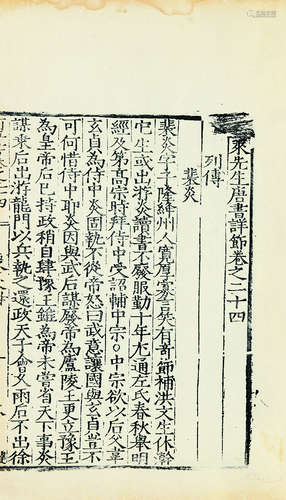 東先生唐書詳節卷之二十四
列傳
裴炎
裴炎字子隆絳州人寬厚寡言笑有奇節補洪文生休澣
它生或出游炎讀書不廢服勤十年尤通左氏春秋舉明
經及第高宗時拜侍中受詔輔中宗○中宗欲以后父韋
玄貞為侍中炎固執不從帝怒曰我意讓國與玄貞豈不
可何惜侍中耶炎因與武后謀廢帝為廬陵王更立豫王
為皇帝后已持政稍自肆豫王雖為帝未嘗省天下事炎
謀乘后出游龍門以兵執之還政天子會久雨后不出徐